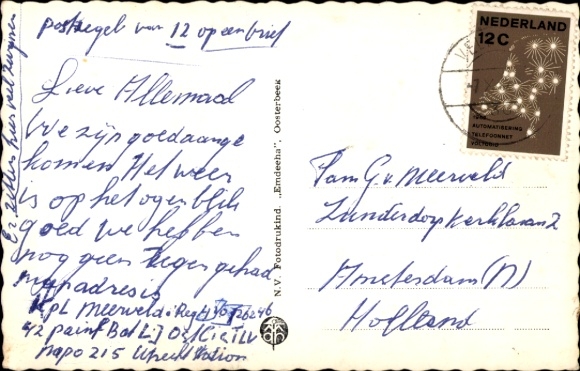 postzegel van 12 op een brief
Lieve Allemaal
We zijn goed aange
komen Het weer
is op het ogenblik
goed We hebben
nog geen regen gehad
mijn adres is
Kpl Meerveld Reg
42 Bat
Napo 215 Utrecht Station
Er zitten hier veel
N.V. Fotodrukind. „Emdeeha”, Oosterbeek
NEDERLAND
12C
1962
AUTOMATISERING
TELEFOONNET
VOLTOOID
Fam G. v Meerveld
Zunderdorp kerklaan 2
Amsterdam (N)
Holland